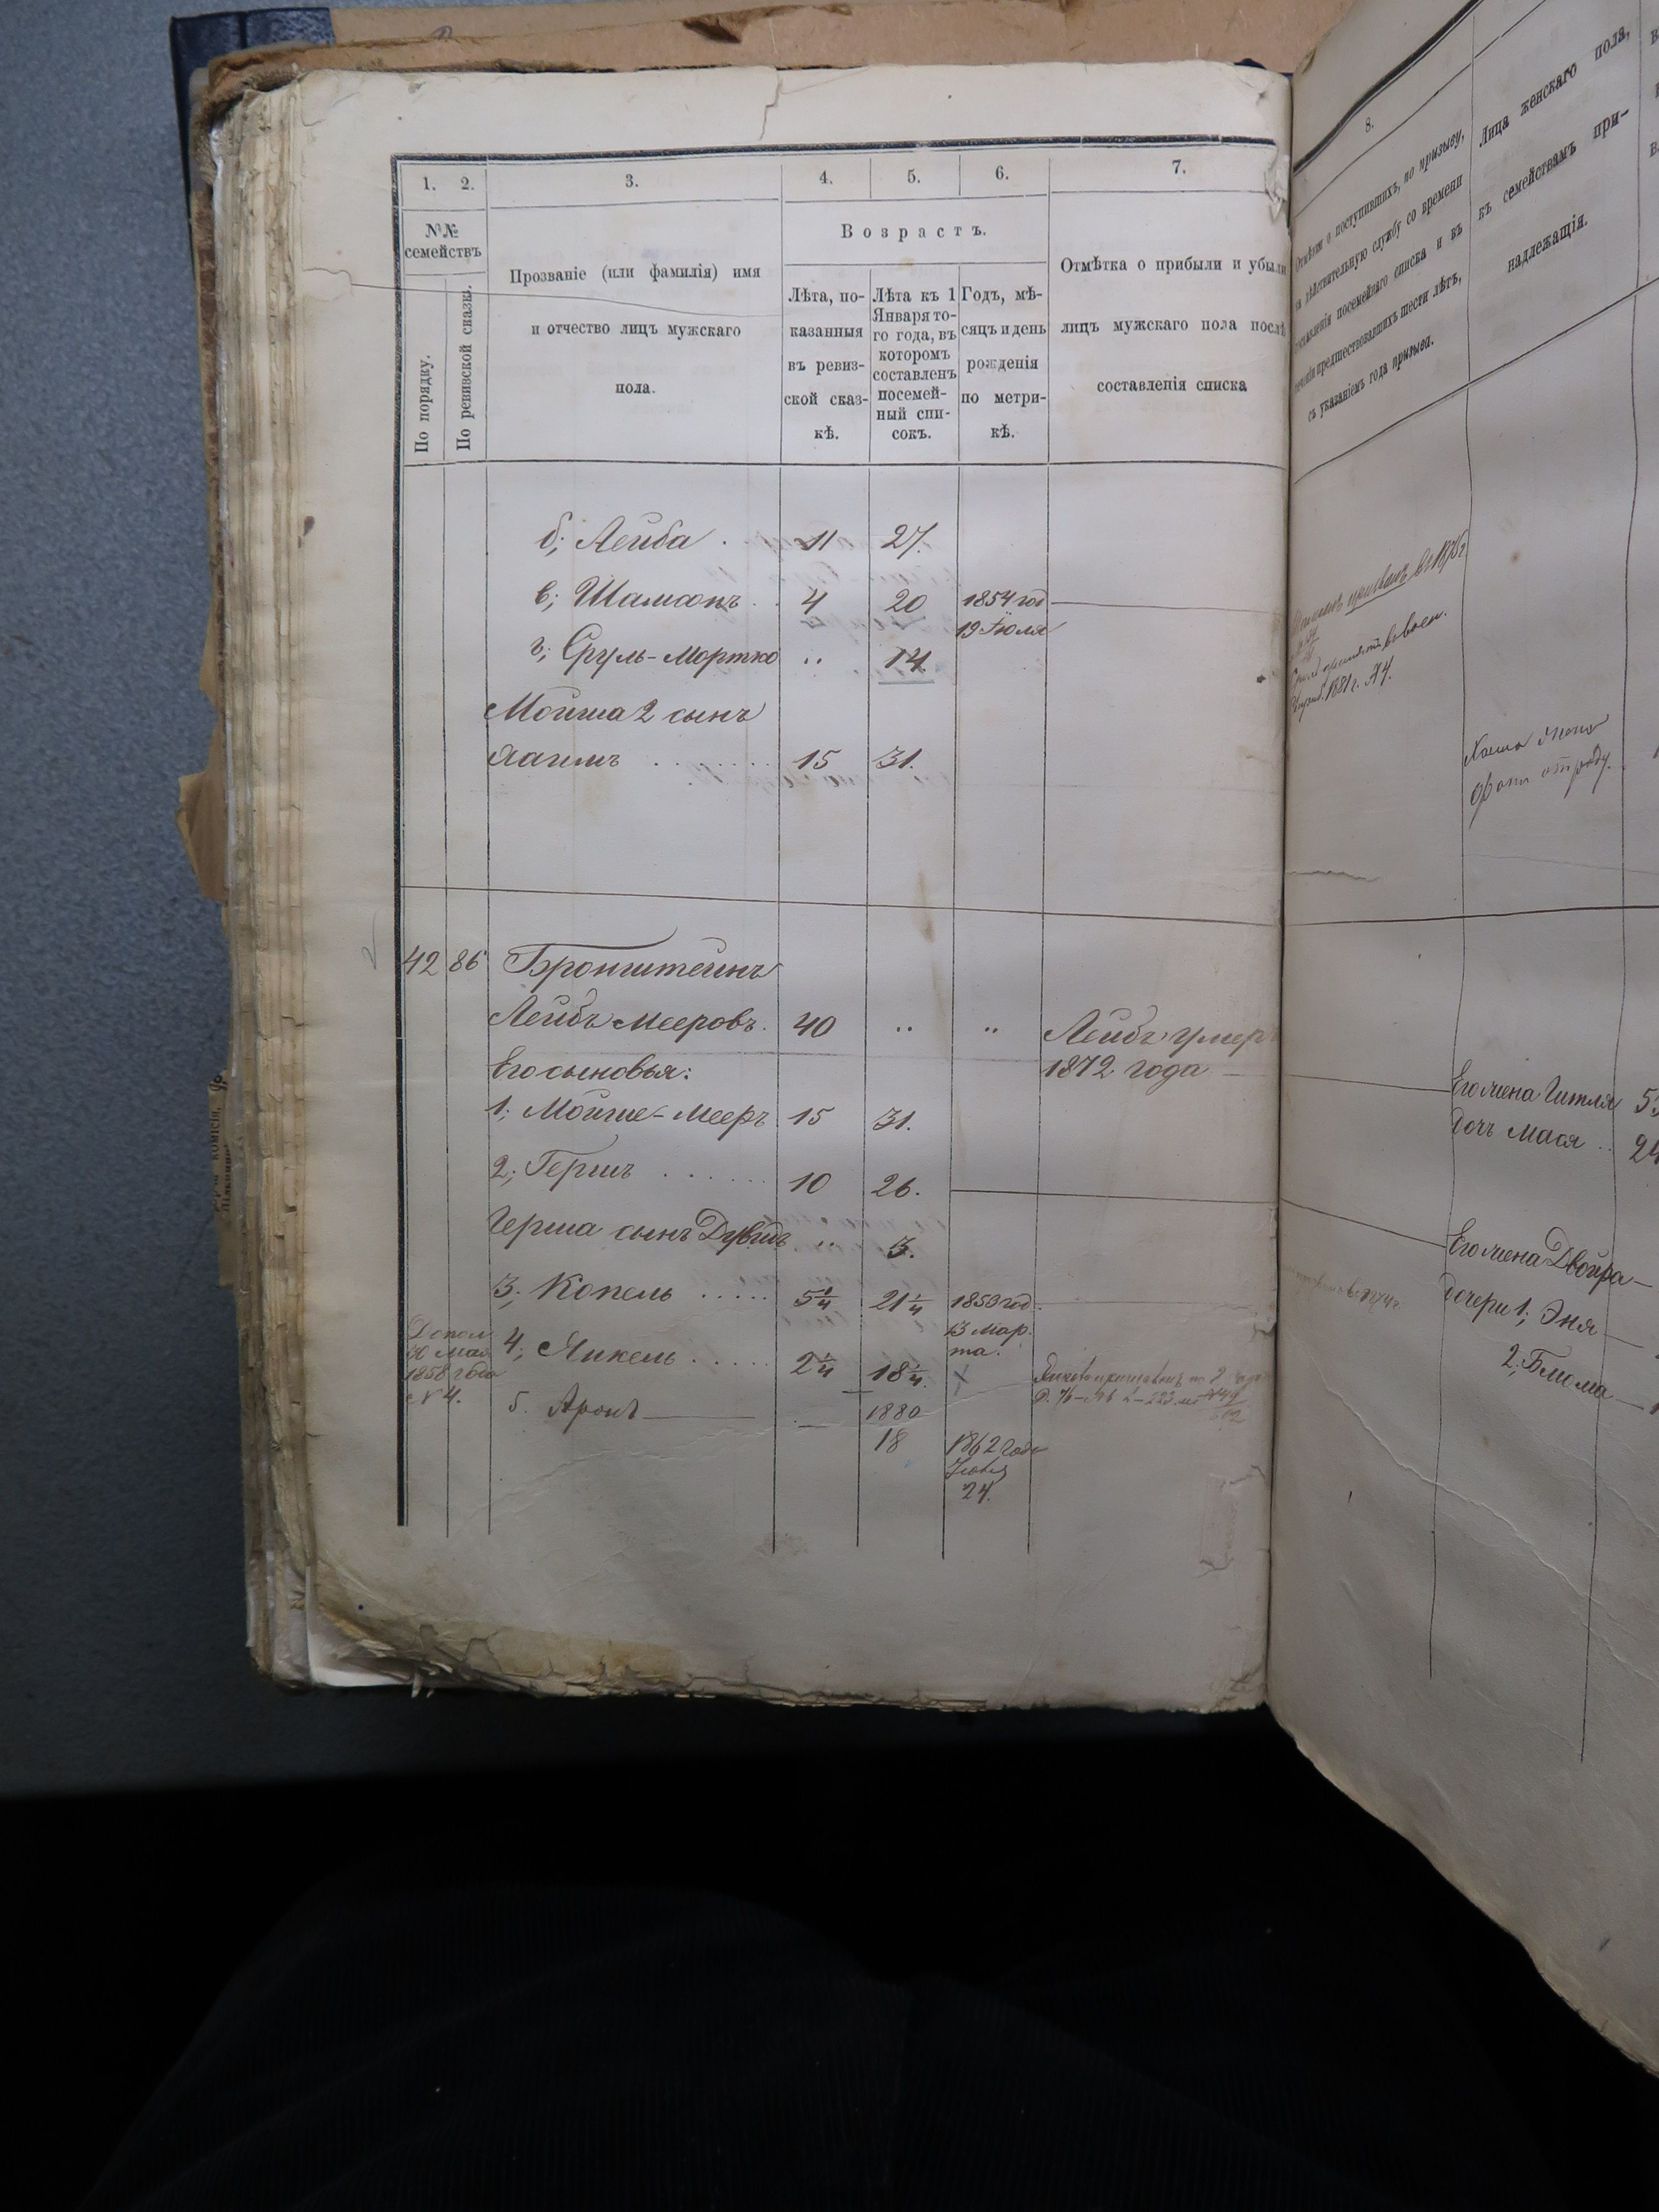 1. 2. 3. 4. 5. 6. 7.
№№ семействъ
По порядку.
По ревизской сказкѣ.
Прозваніе (или фамилія) имя
и отчество лицъ мужскаго
пола.
Возрастъ.
Лѣта, по-
казанныя
въ ревиз-
ской сказ-
кѣ.
Лѣта къ 1
Января то-
го года, въ
котором
составленъ
посемей-
ный спи-
сокъ.
Годъ, мѣ-
сяцъ и день
рожденія
по метри-
кѣ.
Отмѣтка о прибыли и убыли
лицъ мужскаго пола послѣ
составленія списка
б; Лейба . 11 27.
в; Шамсонъ . . 4 20 1854 год
19 Іюля
г; Сруль-Мортко .. 14.
Мойша 2 сынъ
Хаимъ . . . . . . . 15 31.
42 86 Бронштейнъ
Лейбъ Мееровъ. 40 .. .. Лейбъ умер
1872 года
Его сыновья:
1; Мойше-Мееръ 15 31.
2; Гершъ . . . . . . 10 26.
Герша сынъ Дувидъ .. 3.
3; Копель . . . . . 5 1/4 21 1/4 1853 год.
13 Мар.
та.
Допол
30 Мая
1858 года
№ 4.
4; Янкель . . . . . 2 1/4 18 1/4. X
5. Аронъ — 1880
18 1862 года
Іюня
24.
8.
Отмѣтки о поступившихъ, по призыву,
на дѣйствительную службу со времени
составленія посемейнаго списка и въ
теченіи предшествовавшихъ шести лѣтъ,
съ указаніемъ года призыва.
Лица женскаго пола,
къ семействамъ при-
надлежащія.
1881 г.
Его жена Гитля 53
дочь Мася .. 24
Его жена Двойра —
дочери 1; Эня —
2; Блюма —